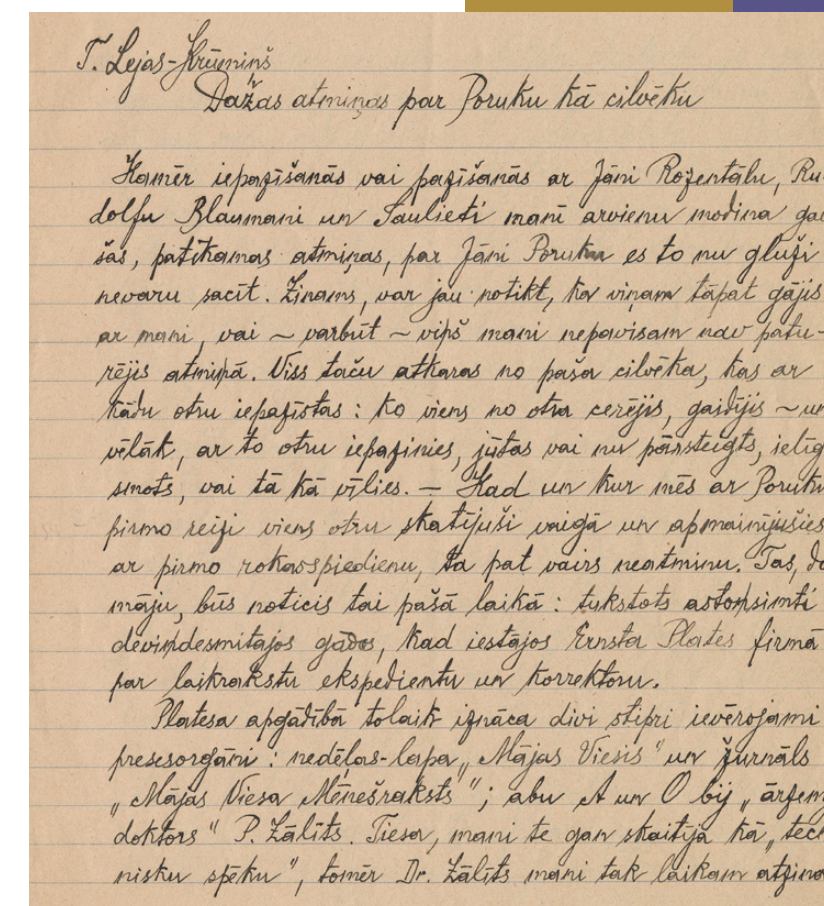 T. Lejas-Krūmiņš
Dažas atmiņas par Poruku kā cilvēku
Kamēr iepazīšanās vai pazīšanās ar Jāni Rozentālu, Ru-
dolfu Blaumani un Saulieti manī arvienu modina gai
šas, patīkamas atmiņas, par Jāni Poruku es to nu gluži
nevaru sacīt. Zinams, var jau notikt, ka viņam tāpat gājis
ar mani, vai ~ varbūt ~ viņš mani nepavisam nav patu-
rējis atmiņā. Viss taču atkaras no paša cilvēka, kas ar
kādu otru iepazīstas: ko viens no otra cerējis, gaidījis ~ un
vēlāk, ar to otru iepazinies, jūtas vai nu pārsteigts, ielīg
smots, vai tā kā vīlies. — Kad un kur mēs ar Poruku
pirmo reizi viens otru skatījuši vaigā un apmainījušies
ar pirmo rokasspiedienu, ta pat vairs neatminu. Tas, do
māju, būs noticis tai pašā laikā: tukstots astoņsimti
deviņdesmitajos gados, kad iestājos Ernsta Plates firmā
par laikrakstu ekspedientu un korrektoru.
Platesa apgādībā tolaik iznāca divi stipri ievērojami
presesorgāni: nedēļas-lapa „Mājas Viesis" un žurnāls
„Mājas Viesa Mēnešraksts"; abu A un O bij „ārzem
doktors" P. Zālīts. Tiesa, mani te gan skaitīja kā „tech
nisku spēku", tomēr Dr. Zālīts mani tak laikam atzina